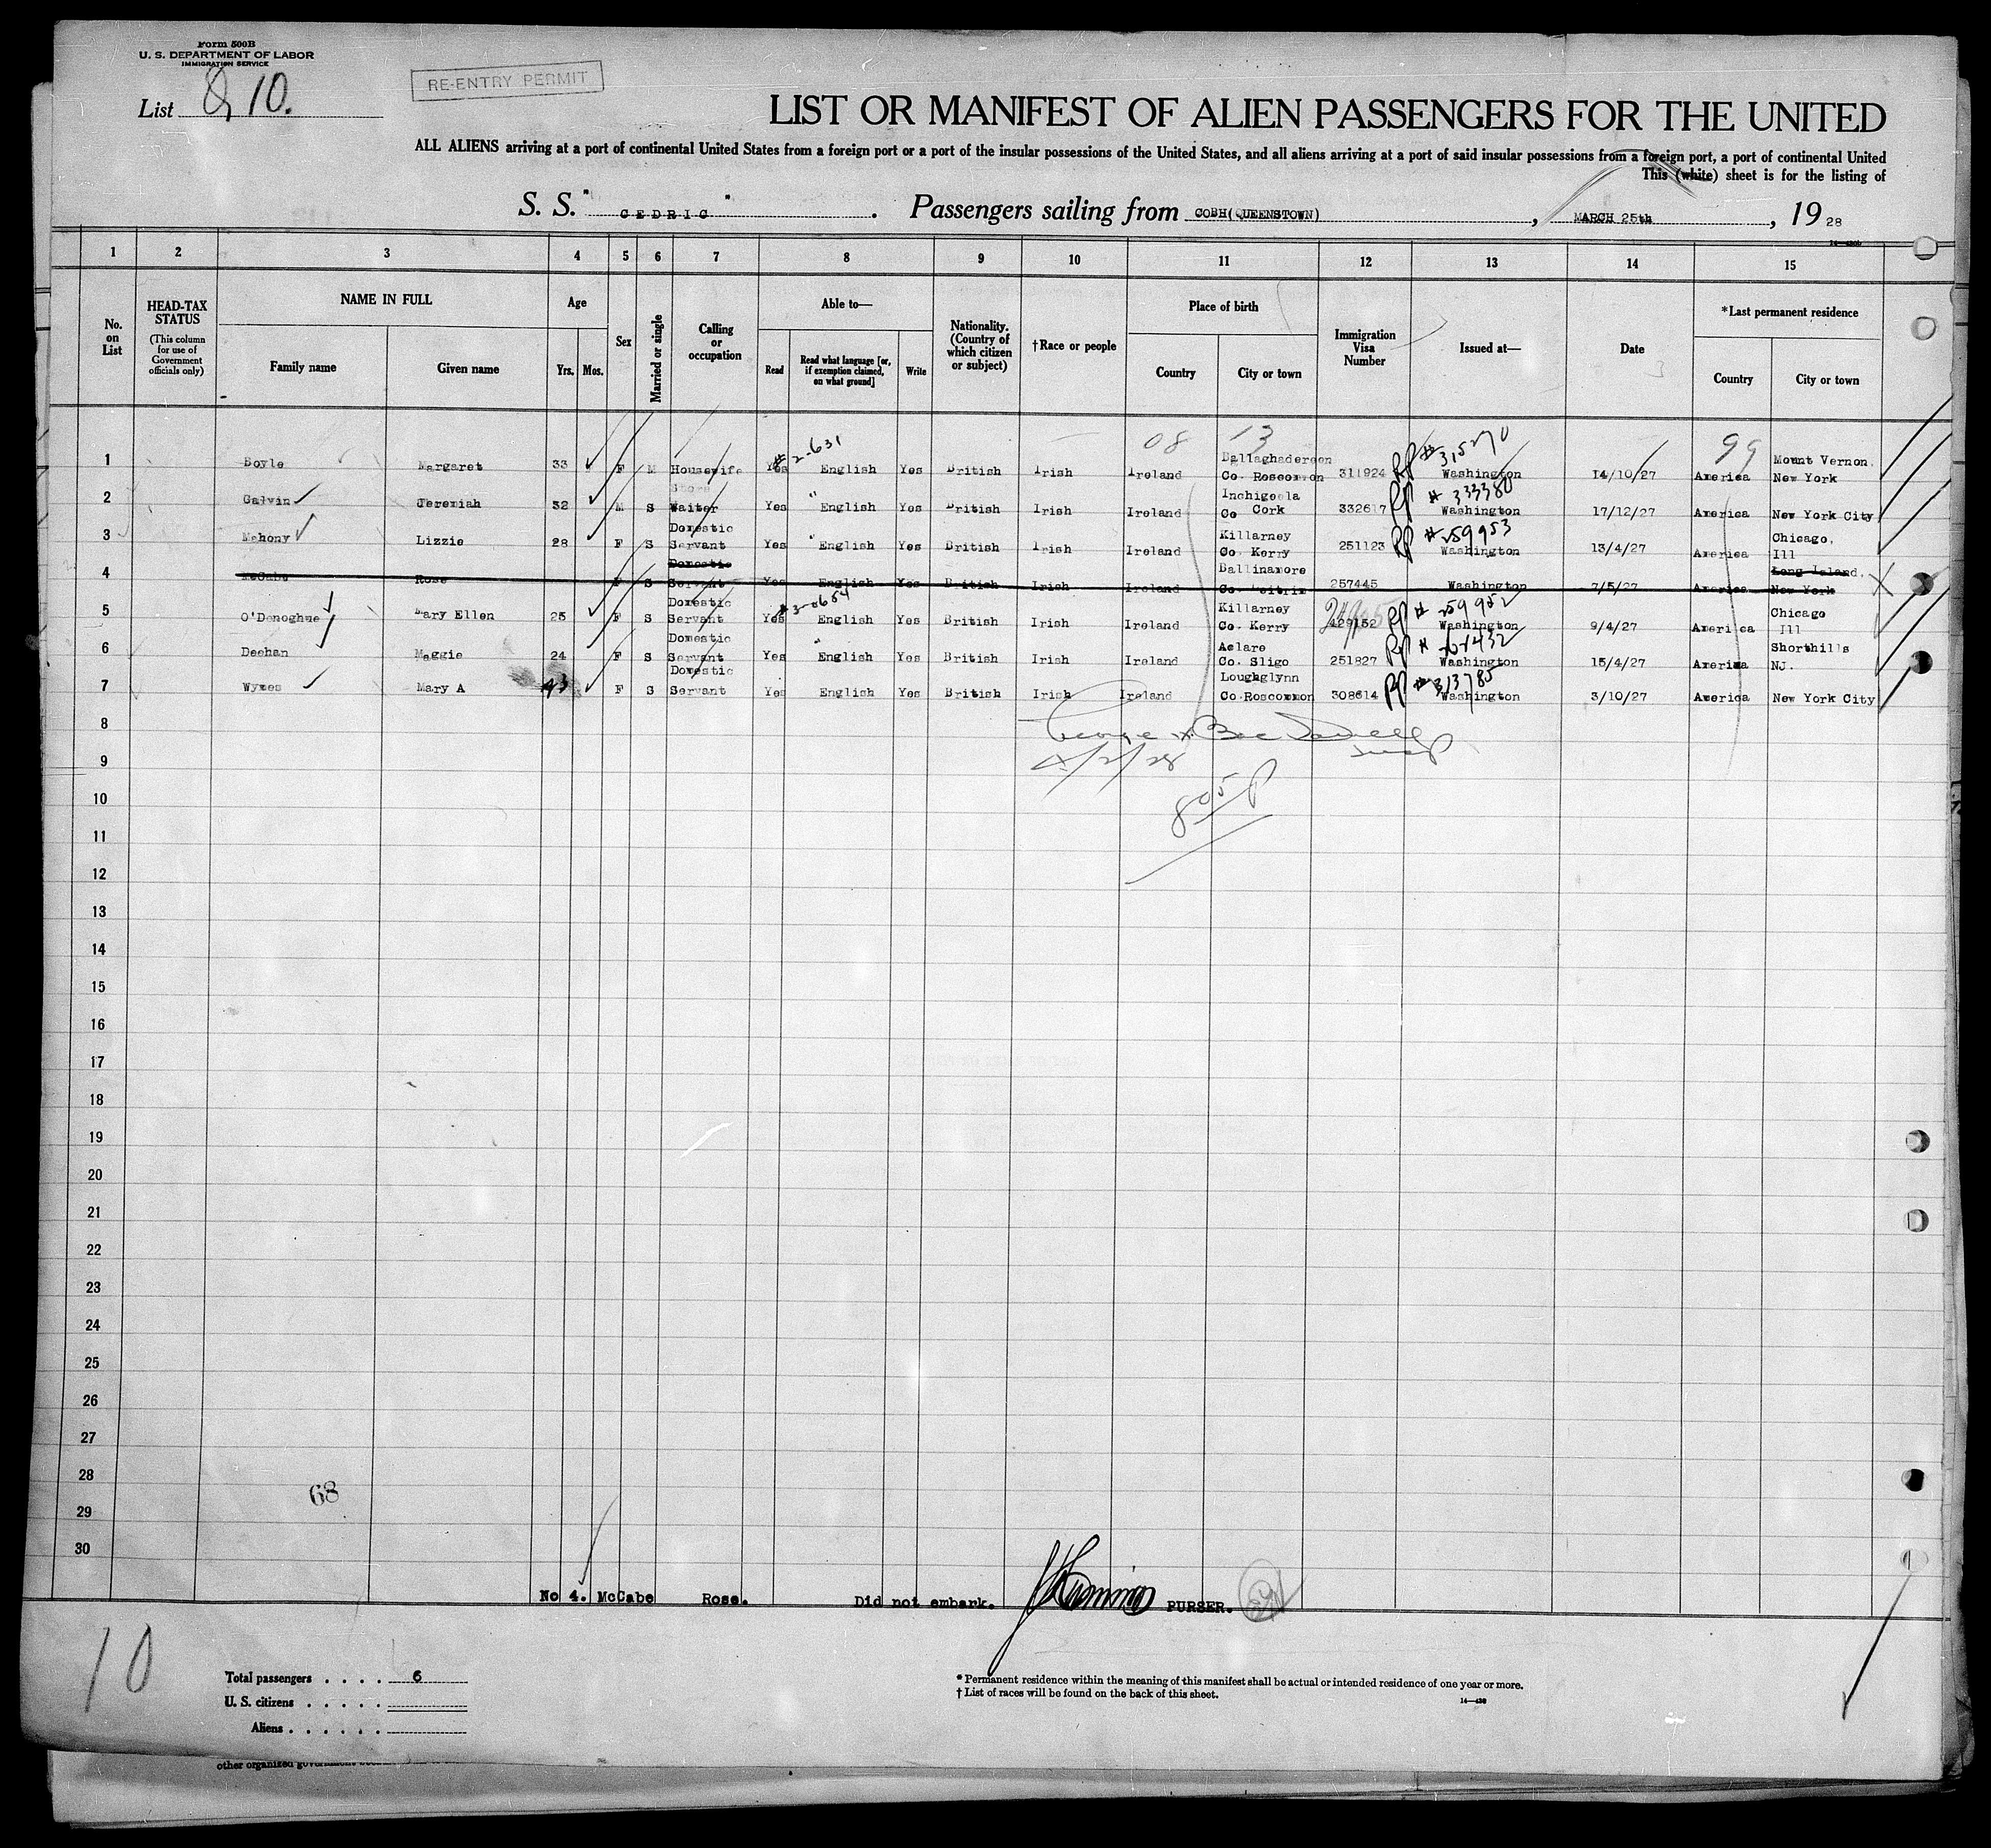 Form 500B
U. S. DEPARTMENT OF LABOR
IMMIGRATION SERVICE
RE-ENTRY PERMIT
List 8, 10.
LIST OR MANIFEST OF ALIEN PASSENGERS FOR THE UNITED
ALL ALIENS arriving at a port of continental United States from a foreign port or a port of the insular possessions of the United States, and all aliens arriving at a port of said insular possessions from a foreign port, a port of continental United
This (white) sheet is for the listing of
S. S. " CEDRIC " . Passengers sailing from COBH(QUEENSTOWN) , MARCH 25th , 19 28
1 2 3 4 5 6 7 8 9 10 11 12 13 14 15
No. on List
HEAD-TAX STATUS
(This column for use of Government officials only)
NAME IN FULL
Family name Given name
Age
Yrs. Mos.
Sex
Married or single
Calling or occupation
Able to—
Read
Read what language [or, if exemption claimed, on what ground]
Write
Nationality. (Country of which citizen or subject)
†Race or people
Place of birth
Country City or town
Immigration Visa Number
Issued at—
Date
*Last permanent residence
Country City or town
08 13 99
#2-631 RP #315270
1 Boyle Margaret 33 F M Housewife Yes English Yes British Irish Ireland Ballaghadereen Co. Roscommon 311924 Washington 14/10/27 America Mount Vernon, New York
RP # 333380
2 Galvin Jeremiah 32 M S Waiter Yes English Yes British Irish Ireland Inchigeela Co Cork 332617 Washington 17/12/27 America New York City
RP #259953
3 Mahony Lizzie 28 F S Domestic Servant Yes English Yes British Irish Ireland Killarney Co. Kerry 251123 Washington 13/4/27 America Chicago, Ill
4 McCabe Rose F S Domestic Servant Yes English Yes British Irish Ireland Ballinamore Co. Leitrim 257445 Washington 7/5/27 America Long Island, New York
#3-0654 RP # 259952
5 O'Donoghue Mary Ellen 25 F S Domestic Servant Yes English Yes British Irish Ireland Killarney Co. Kerry Washington 9/4/27 America Chicago Ill
RP #
6 Deehan Maggie 24 F S Domestic Servant Yes English Yes British Irish Ireland Aclare Co. Sligo 251827 Washington 15/4/27 America Shorthills NJ.
RP #313785
7 Wymes Mary A 43 F S Domestic Servant Yes English Yes British Irish Ireland Loughglynn Co.Roscommon 308614 Washington 3/10/27 America New York City
8
George
9
4/2/28
10
805 P
11
12
13
14
15
16
17
18
19
20
21
22
23
24
25
26
27
28
68
29
30
No 4. McCabe Rose. Did not embark. PURSER.
10
Total passengers . . . . 6
U. S. citizens . . . . .
Aliens . . . . . .
* Permanent residence within the meaning of this manifest shall be actual or intended residence of one year or more.
† List of races will be found on the back of this sheet.
other organized government